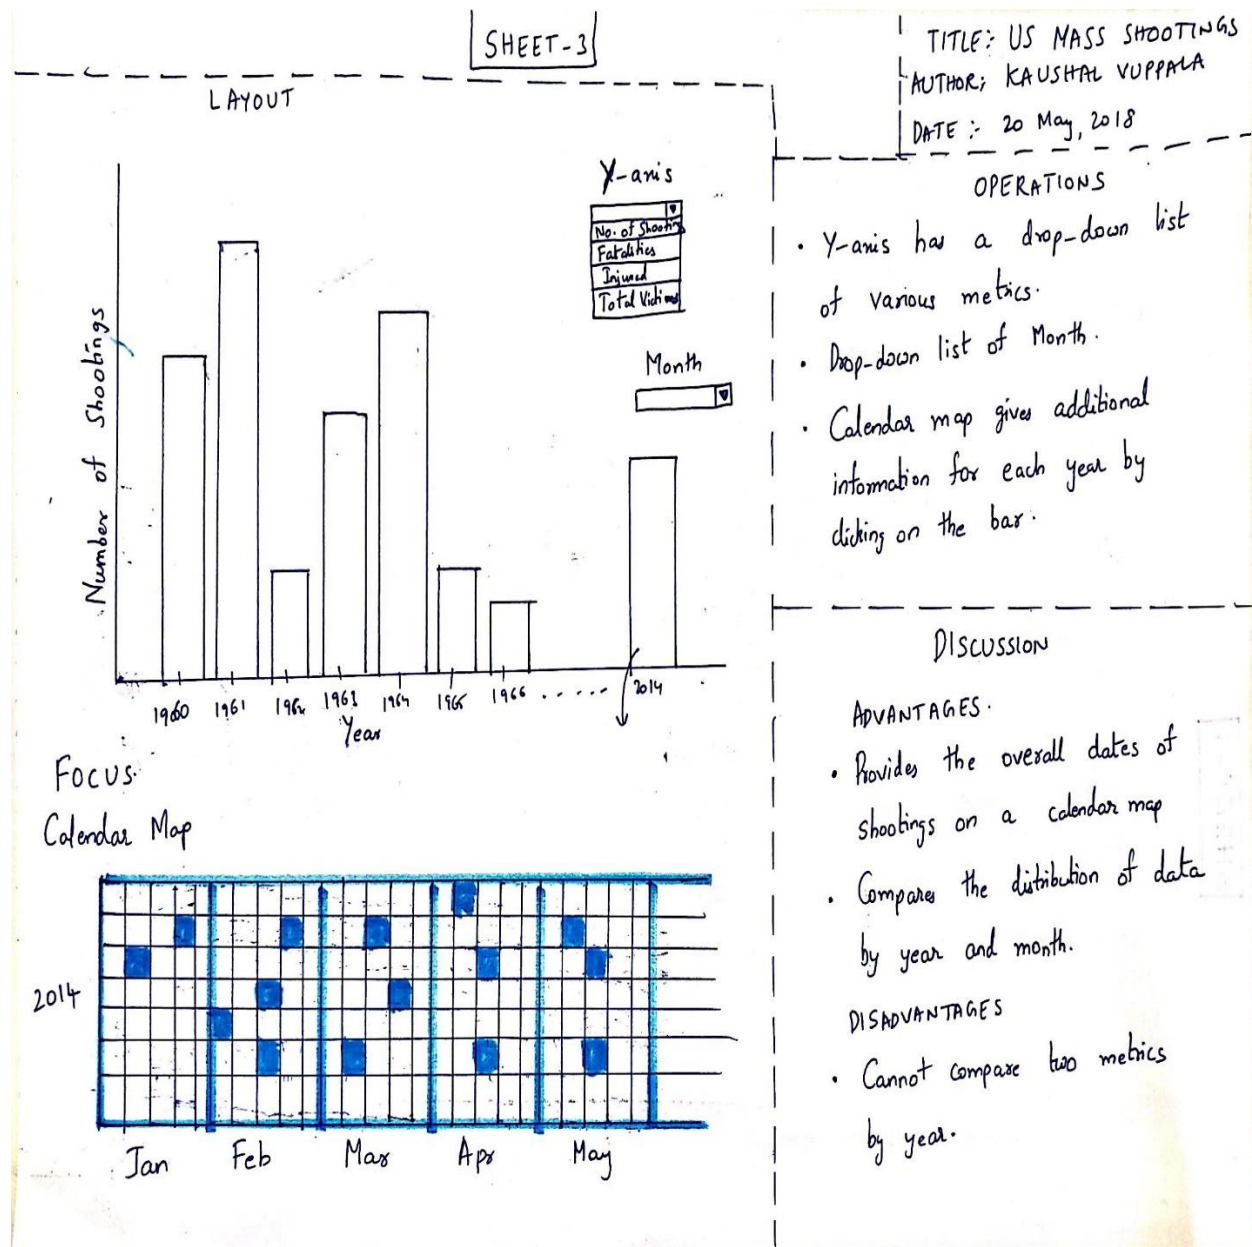 SHEET-3
TITLE:- US MASS SHOOTINGS
AUTHOR; KAUSHAL VUPPALA
DATE :- 20 May, 2018
LAYOUT
Y-axis
No. of Shooting
Fatalities
Injured
Total Victims
Month
Number of Shootings
1960 1961 1962 1963 1964 1965 1966 ...... 2014
Year
FOCUS.
Calendar Map
2014
Jan Feb Mar Apr May
OPERATIONS
• Y-axis has a drop-down list
of various metrics.
• Drop-down list of Month.
• Calendar map gives additional
information for each year by
clicking on the bar.
DISCUSSION
ADVANTAGES.
• Provides the overall dates of
shootings on a calendar map
• Compares the distribution of data
by year and month.
DISADVANTAGES
• Cannot compare two metrics
by year.